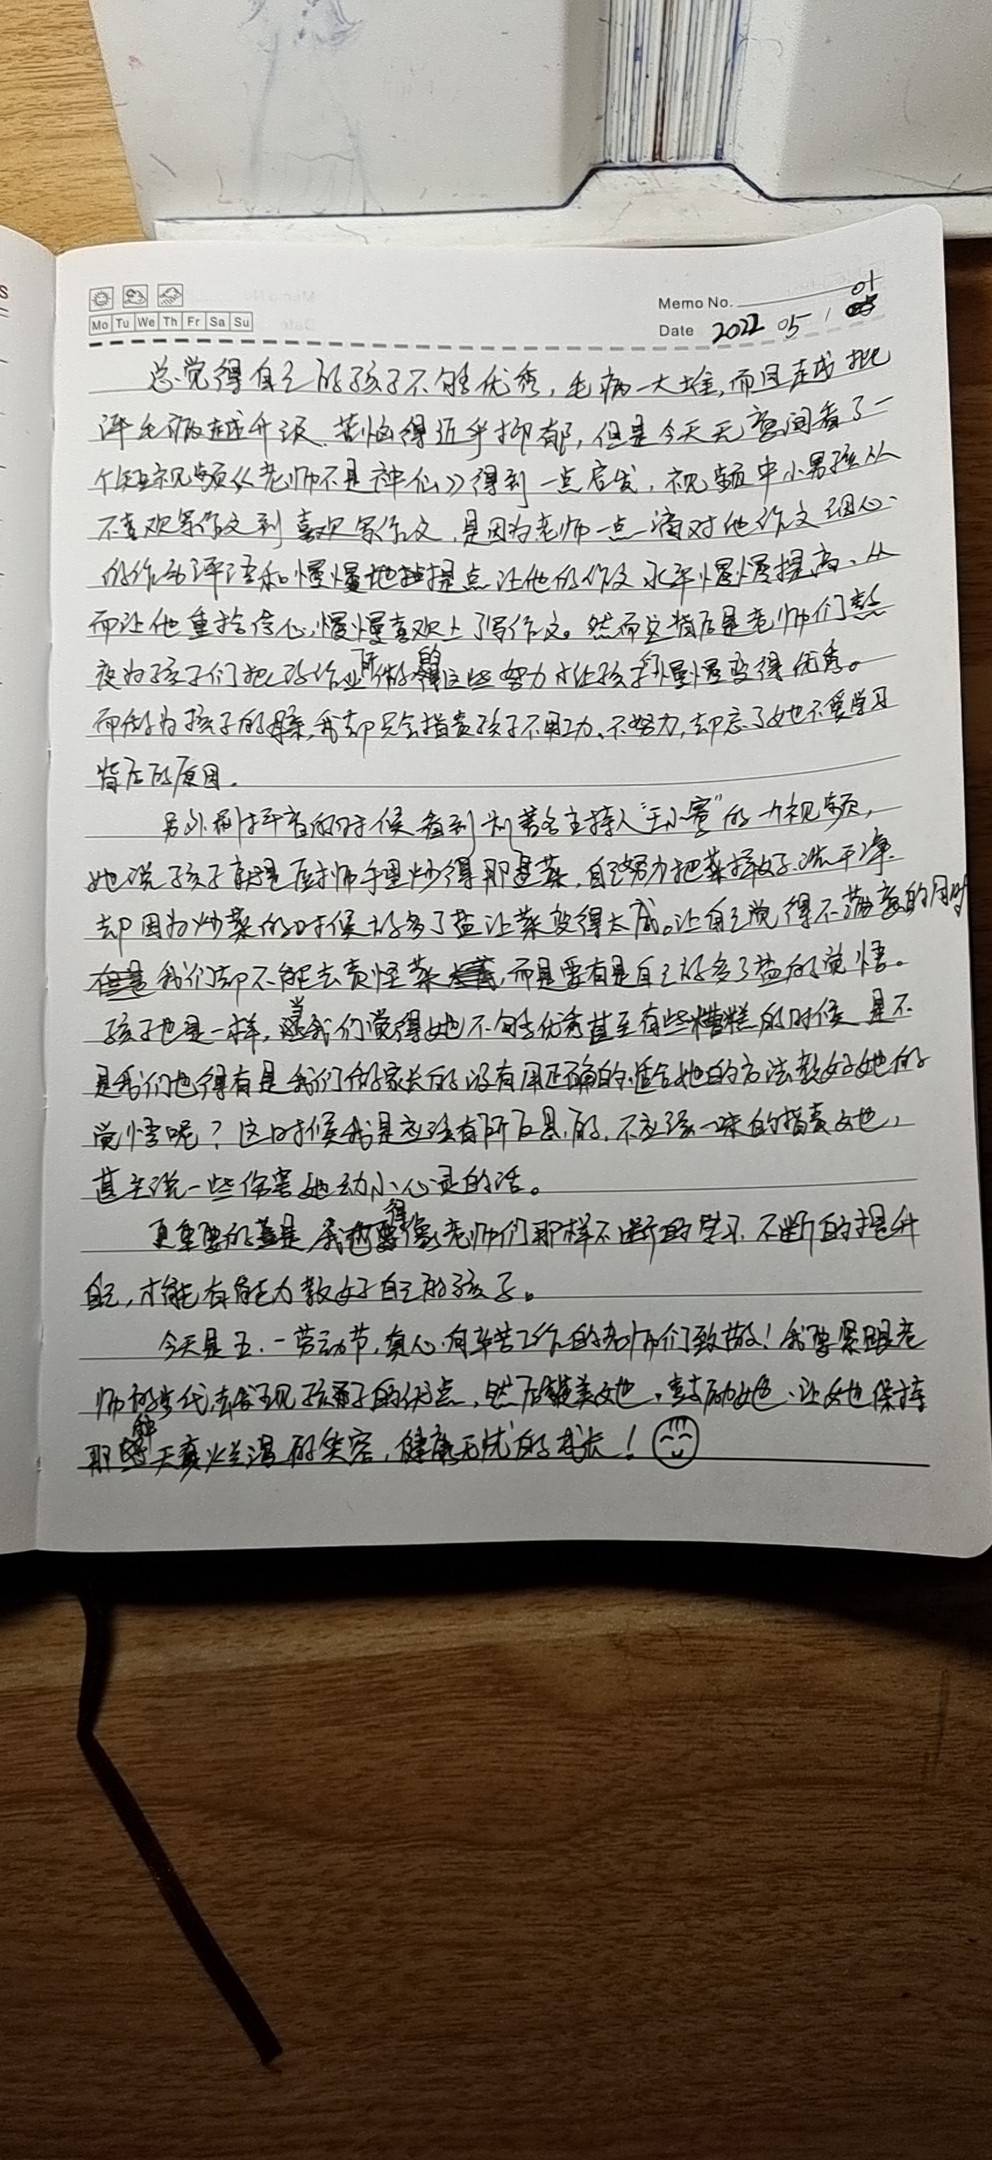 Memo No.
Mo Tu We Th Fr Sa Su
Date 2022 05 / 01
总觉得自己的孩子不够优秀，毛病一大堆，而且越批
评毛病越升级、苦恼得近乎抑郁，但是今天无意间看了一
个短视频《老师不是神仙》得到一点启发，视频中小男孩从
不喜欢写作文到喜欢写作文，是因为老师一点一滴对他作文细心
的作出评语和慢慢地提点让他的作文水平慢慢提高、从
而让他重拾信心，慢慢喜欢上了写作文。然而这背后是老师们熬
夜为孩子们批改作业所做的这些努力才让孩子慢慢变得优秀。
而做为孩子的母亲，我却只会指责孩子不用功、不努力，却忘了她不爱学习
背后的原因。
另外刷抖音的时候看到到著名主持人“王小骞”的一个视频，
她说孩子就是厨师手里炒得那是菜，自己努力把菜择好、洗干净、
却因为炒菜的时候放多了盐让菜变得太咸。让自己觉得不满意的同时
我们却不能去责怪菜，而是要有是自己放多了盐的觉悟。
孩子也是一样，当我们觉得她不够优秀甚至有些糟糕的时候 是不
是我们也得有是我们做家长的没有用正确的、适合她的方法教好她的
觉悟呢？这时候我是应该有所反思的，不应该一味的指责她，
甚至说一些伤害她幼小心灵的话。
更重要的是 我也得像老师们那样不断的学习、不断的提升
自己，才能有能力教好自己的孩子。
今天是五.一劳动节，真心向辛苦工作的老师们致敬！我要紧跟老
师的步伐，去发现孩子的优点，然后赞美她、鼓励她、让她保持
那种天真烂漫的笑容，健康无忧的成长！